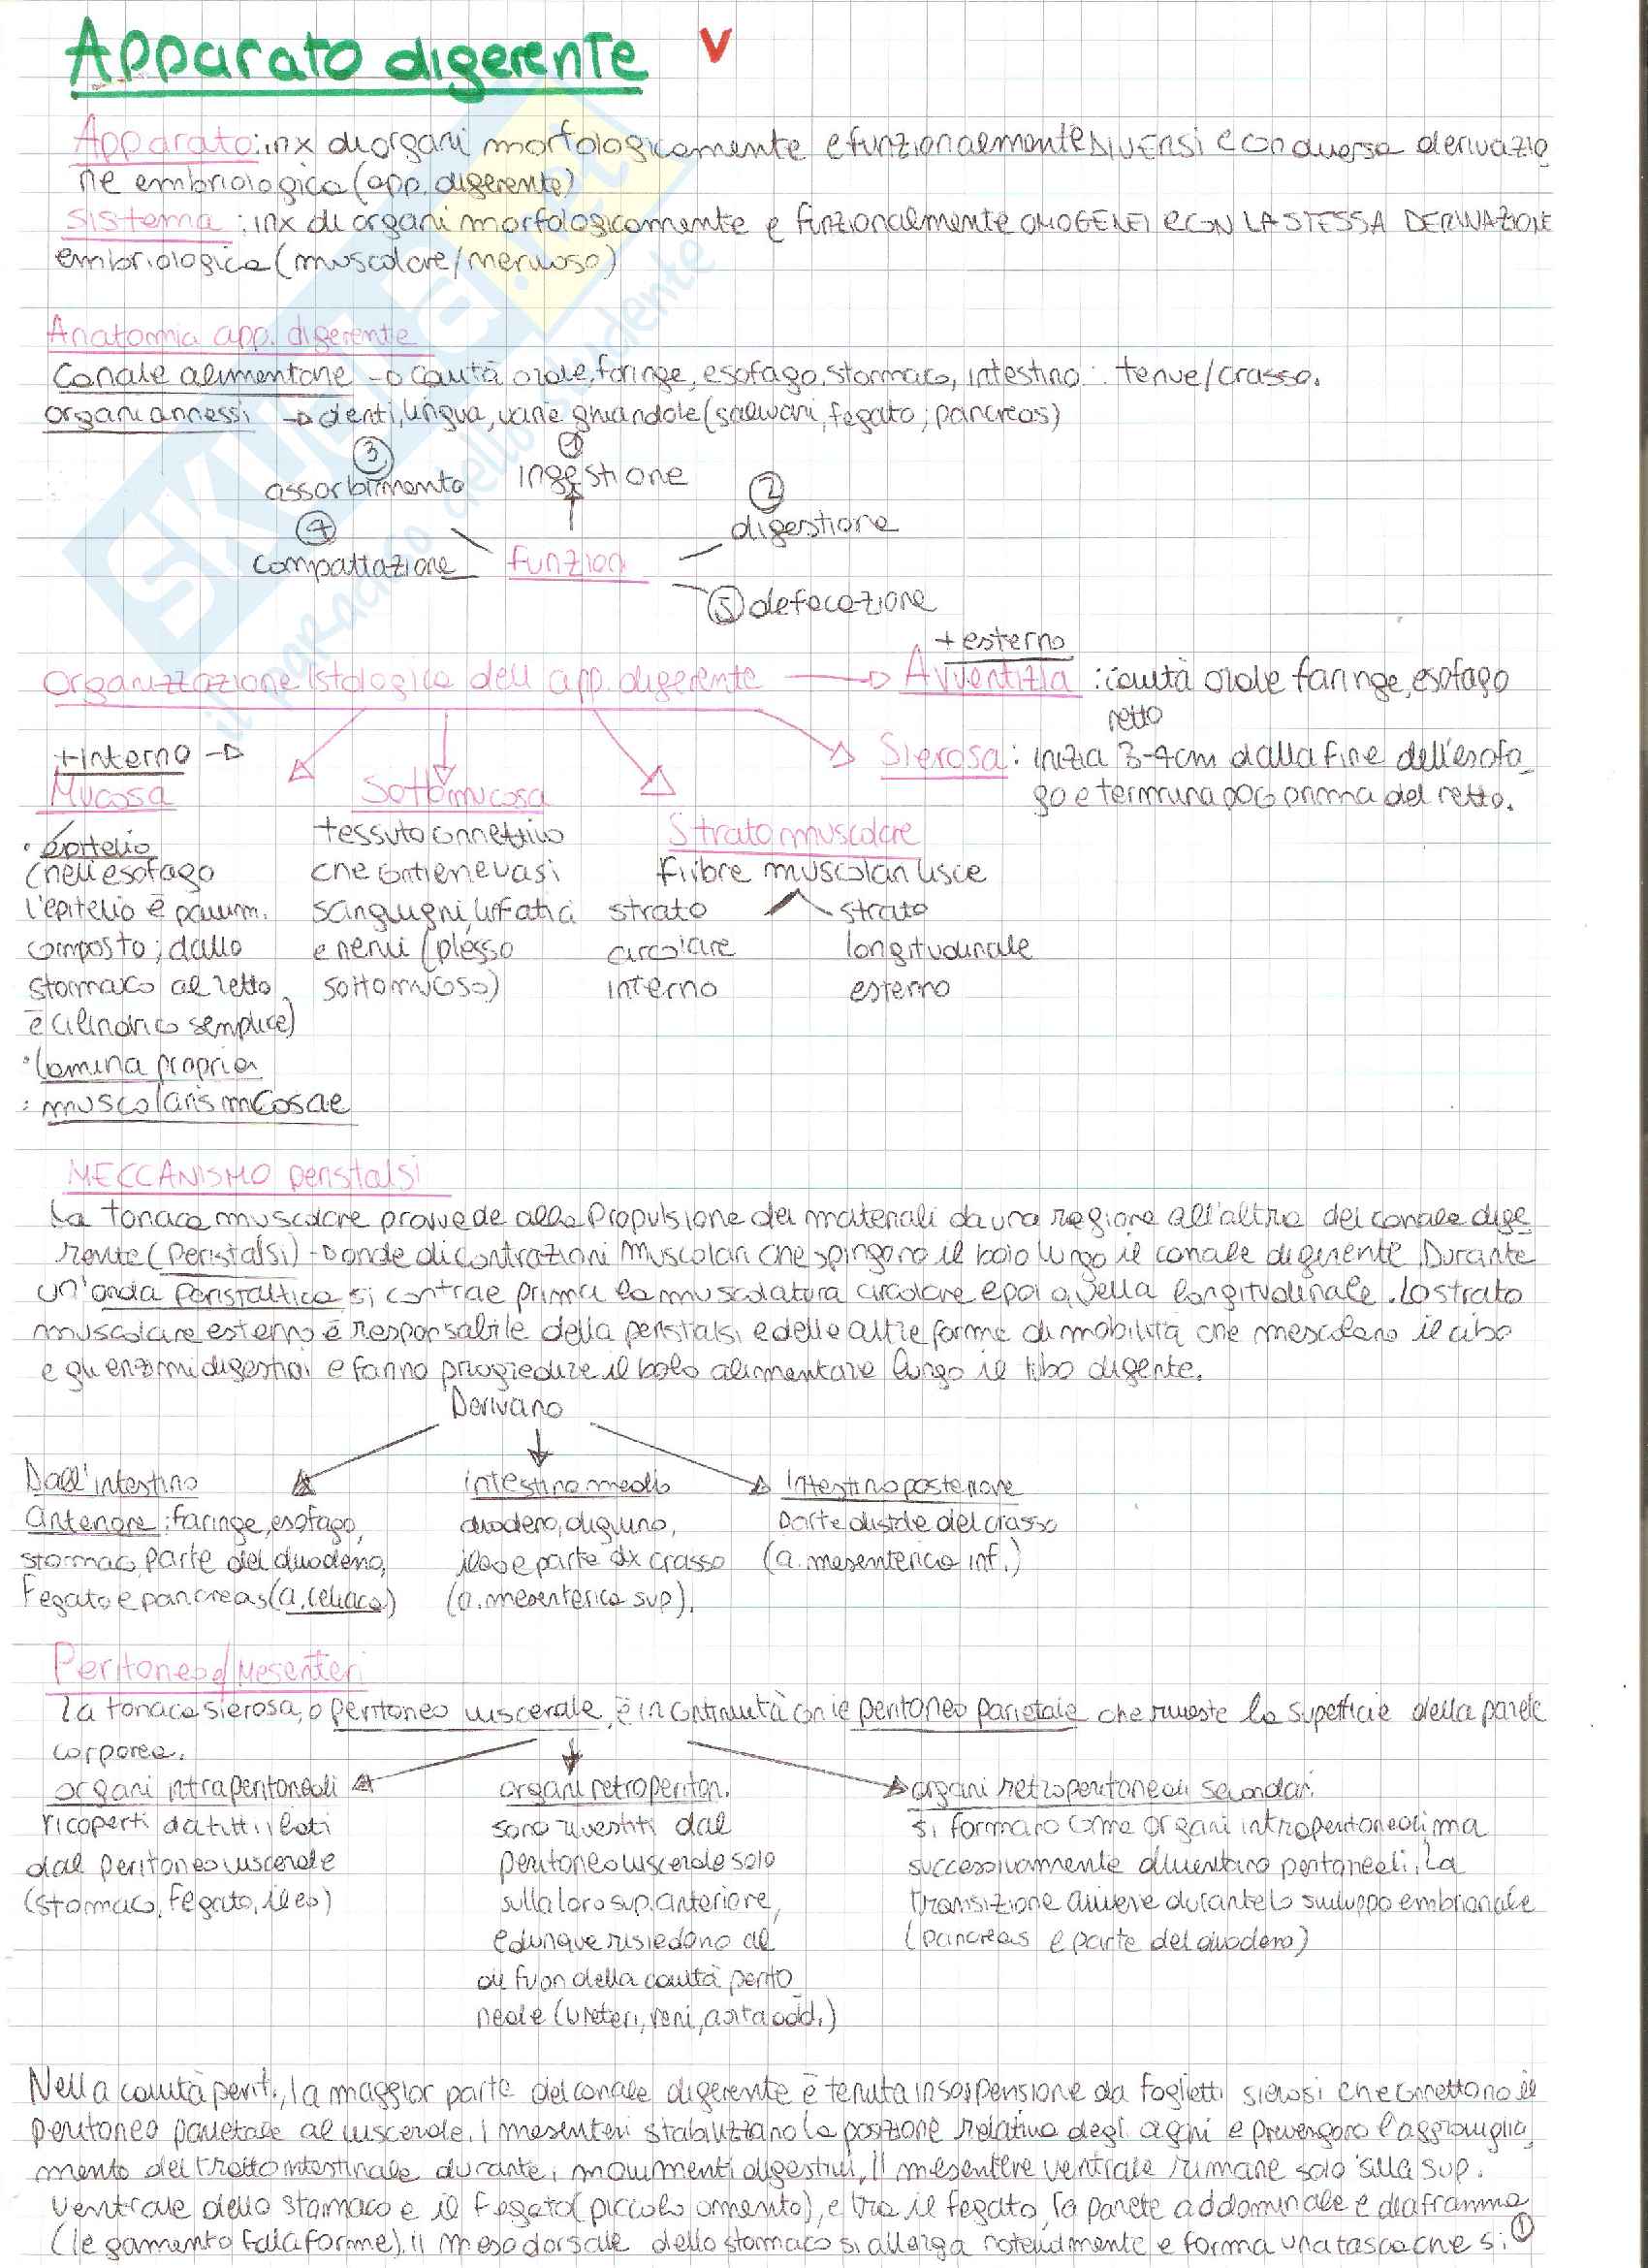 Apparato digerente V
Apparato: inx di organi morfologicamente e funzionalmente DIVERSI e con diversa derivazio
ne embriologica (app. digerente)
Sistema : inx di organi morfologicamente e funzionalmente OMOGENEI e CON LA STESSA DERIVAZIONE
embriologica (muscolare/nervoso)
Anatomia app. digerente
Canale alimentare → cavità orale, faringe, esofago, stomaco, intestino: tenue/crasso.
organi annessi → denti, lingua, varie ghiandole (salivari, fegato, pancreas)
③ ①
assorbimento ingestione ②
④ digestione
compattazione funzioni
⑤ defecazione
+ esterno
Organizzazione istologica dell app. digerente → Avventizia : cavità orale faringe, esofago
retto
+ interno → Sierosa : inizia 3-4cm dalla fine dell'esofa-
Mucosa Sottomucosa go e termina poco prima del retto.
tessuto connettivo Strato muscolare
• epitelio
(nell'esofago che contiene vasi Fiibre muscolari lisce
l'epitelio è pavim. sanguigni, linfatici strato strato
composto; dallo e nervi (plesso circolare longitudinale
stomaco al retto sottomucoso) interno esterno
è cilindrico semplice)
• lamina propria
• muscolaris mucosae
MECCANISMO peristalsi
La tonaca muscolare provvede alla propulsione dei materiali da una regione all'altra del canale dige
rente (peristalsi) → onde di contrazioni muscolari che spingono il bolo lungo il canale digerente. Durante
un'onda peristaltica si contrae prima la muscolatura circolare e poi quella longitudinale. Lo strato
muscolare esterno è responsabile della peristalsi e delle altre forme di mobilità che mescolano il cibo
e gli enzimi digestivi e fanno progredire il bolo alimentare lungo il tubo digente.
Derivano
Dall'intestino intestino medio Intestino posteriore
anteriore: faringe, esofago, duodeno, digiuno, parte distale del crasso
stomaco, parte del duodeno, ileo e parte dx crasso (a. mesenterica inf.)
Fegato e pancreas (a. celiaca) (a. mesenterica sup).
Peritoneo e/Mesenteri
La tonaca sierosa, o peritoneo viscerale, è in continuità con il peritoneo parietale che riveste la superficie della parete
corporea.
organi intraperitoneali organi retroperiton. organi retroperitoneali secondari
ricoperti da tutti i lati sono rivestiti dal si formano come organi intraperitoneali ma
dal peritoneo viscerale peritoneo viscerale solo successivamente diventano peritoneali. La
(stomaco, Fegato, ileo) sulla loro sup. anteriore, transizione avviene durante lo sviluppo embrionale
e dunque risiedono al (pancreas e parte del duodeno)
di fuori della cavità perito
neale (ureteri, reni, aorta add.)
Nella cavità perit., la maggior parte del canale digerente è tenuta in sospensione da foglietti sierosi che connettono il
peritoneo parietale al viscerale. I mesenteri stabilizzano la posizione relativa degli organi e prevengono l'aggroviglia
mento del tratto intestinale durante i movimenti digestivi. Il mesentere ventrale rimane solo sulla sup.
ventrale dello stomaco e il Fegato (piccolo omento), e tra il fegato, la parete addominale e diaframma
(legamento falciforme). Il meso dorsale dello stomaco si allarga notevolmente e forma una tasca che si ①
SKUOLA.net
il paradiso dello studente